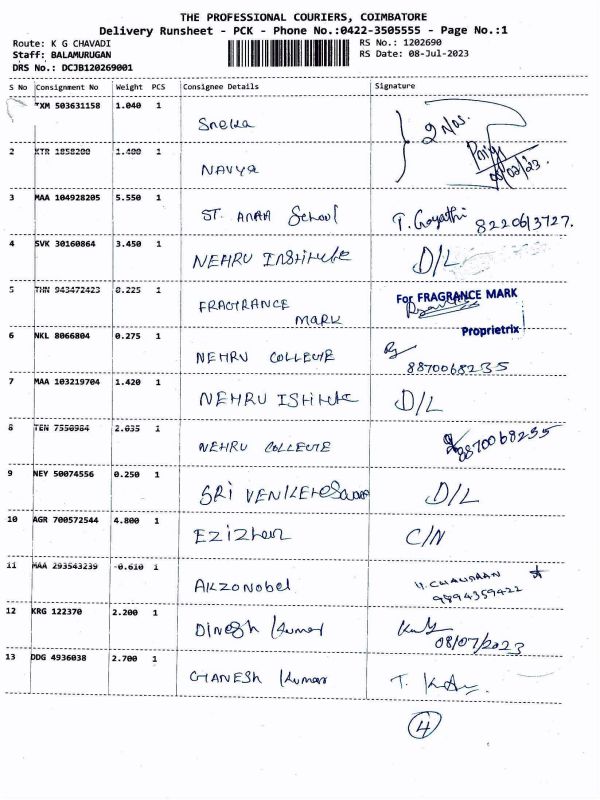 THE PROFESSIONAL COURIERS, COIMBATORE
Delivery Runsheet - PCK - Phone No.:0422-3505555 - Page No.:1
Route: K G CHAVADI RS No.: 1202690
Staff: BALAMURUGAN RS Date: 08-Jul-2023
DRS No.: DCJB120269001
S No Consignment No Weight PCS Consignee Details Signature
XM 503631158 1.040 1 Sneka 2 Nos.
2 KTR 1858200 1.400 1 NAVYA
3 MAA 104928205 5.550 1 ST. ANAA School T. Gayathi 8220613727.
4 SVK 30160864 3.450 1 NEHRU INstitute D/L
5 THN 943472423 8.225 1 FRAGTRANCE MARK For FRAGRANCE MARK
Proprietrix
6 NKL 8066804 0.275 1 NEHRU COLLEGTE 8870068235
7 MAA 103219704 1.420 1 NEHRU IStitute D/L
8 TEN 7550984 2.035 1 NEHRU COLLEGTE 8870068235
9 NEY 50074556 0.250 1 SRI D/L
10 AGR 700572544 4.800 1 C/N
11 MAA 293543239 0.610 1 AKZONObel 9894359422
12 KRG 122370 2.200 1 DINESh kumar 08/07/2023
13 DDG 4936038 2.700 1 GTANESh kumar
4